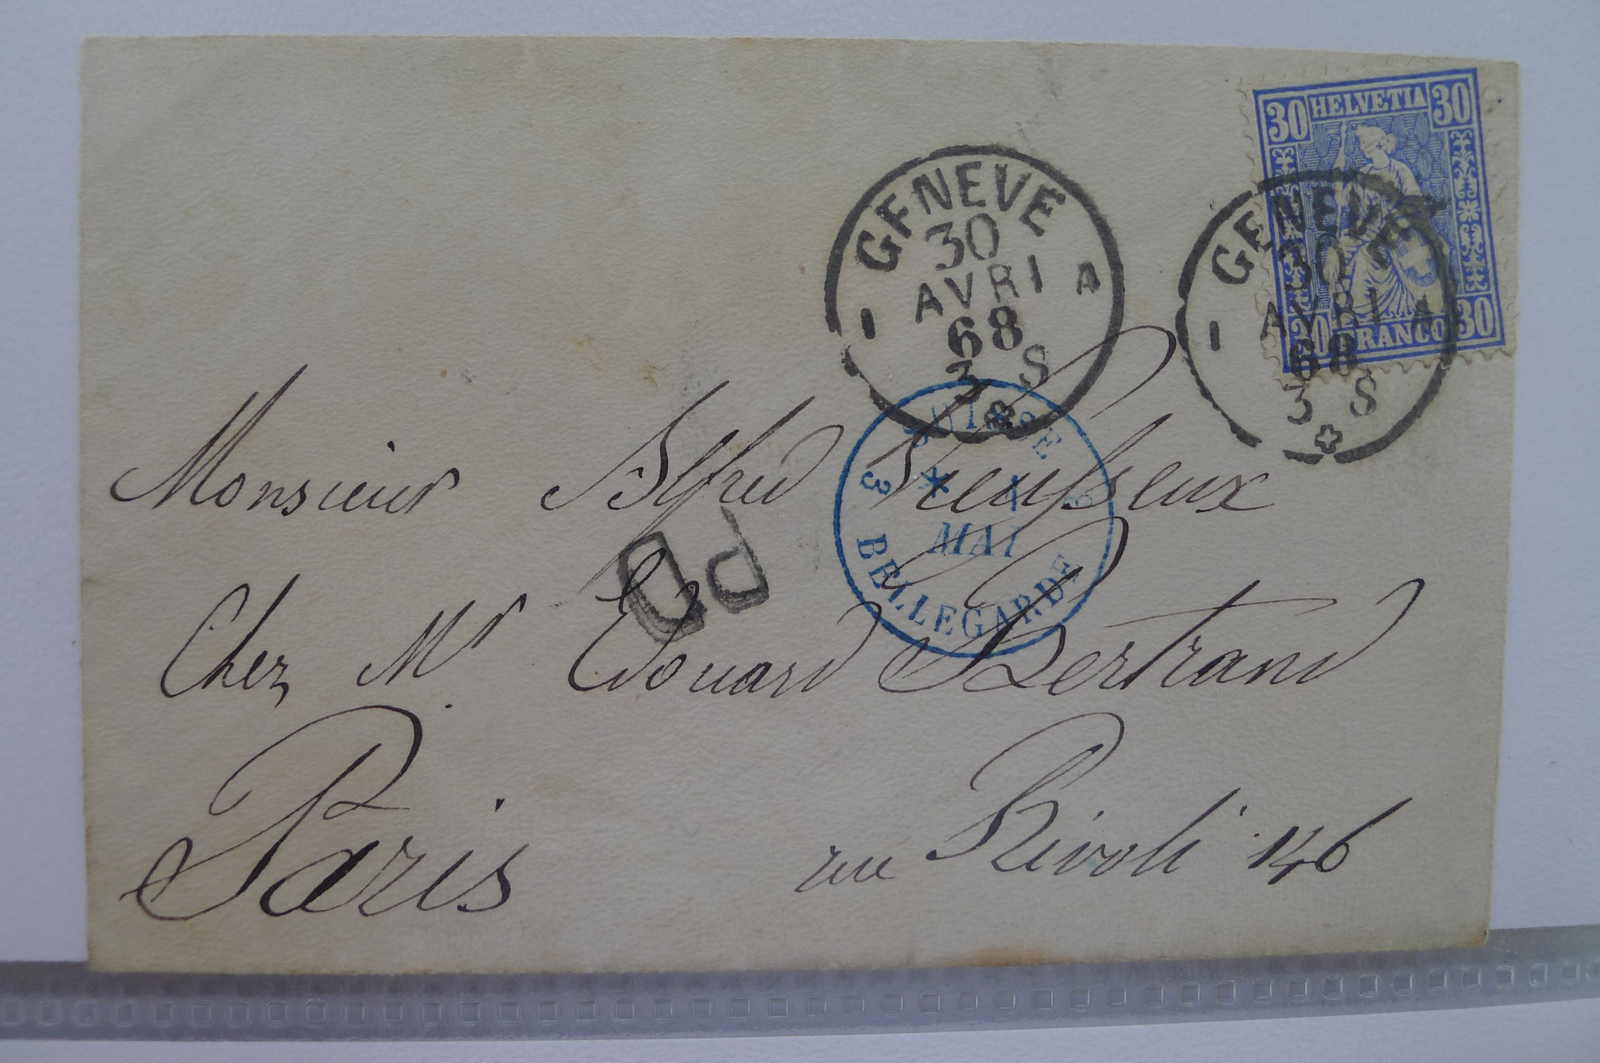 30 HELVETIA 30
30 FRANCO 30
GENEVE
30
AVRI
68
3 S
1 A
GENEVE
30
AVRI
68
3 S
1 A
SUISSE
3
1
MAI
BELLEGARDE
PD
Monsieur Alfred
Chez Mr. Edouard Bertrand
Paris rue Rivoli 146